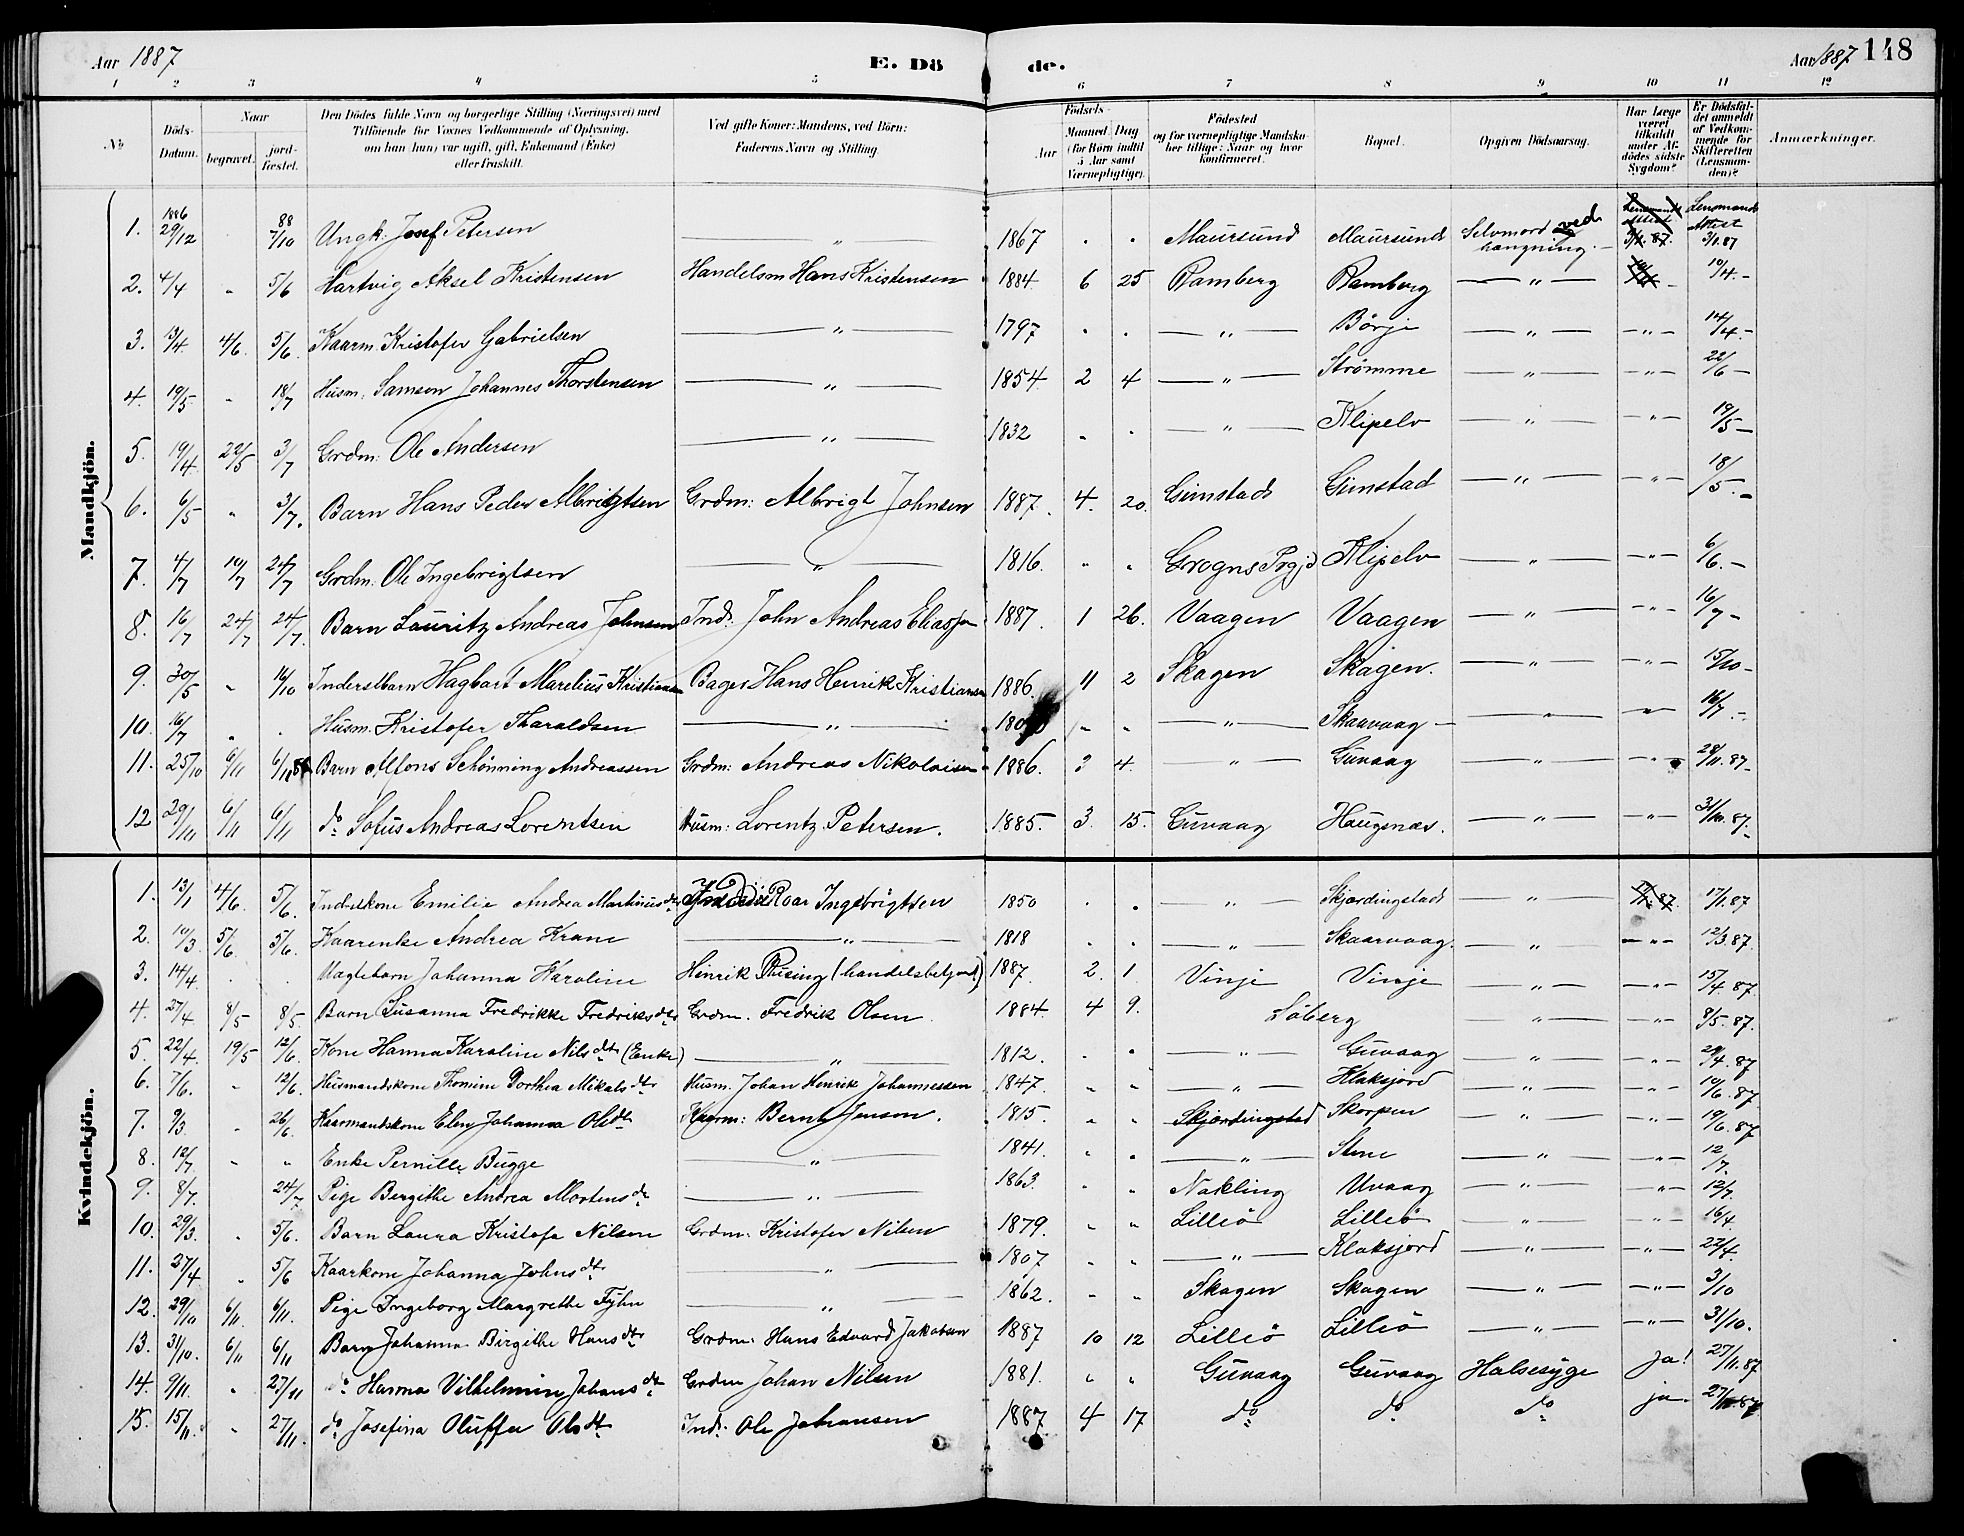 Aar 1887 E. Dö de. Aar 1887 148
1 2 3 4 5 6 7 8 9 10 11 12
No
Döds-Datum.
Naar begravet. jordfæstet.
Den Dödes fulde Navn og borgerlige Stilling (Næringsvei) med
Tilföiende for Voxnes Vedkommende af Oplysning,
om han (hun) var ugift, gift, Enkemand (Enke)
eller fraskilt.
Ved gifte Koner: Mandens, ved Börn:
Faderens Navn og Stilling.
Födsels-
Aar Maaned Dag
(for Börn indtil
5 Aar samt
Værnepligtige).
Födested
og for værnepligtige Mandskaber tillige: Naar og hvor
konfirmeret.
Bopæl.
Opgiven Dödsaarsag.
Har Læge
været
tilkaldt
under Afdödes sidste
Sygdom?
Er Dödsfaldet anmeldt
af Vedkommende for
Skifteretten
(Lensmanden)?
Anmærkninger.
Mandkjön.
1. 1886 29/12 88 7/10 Ungk. Josef Petersen " 1867 " " Maursund Maursund Selvmord ved hængning. Lensmands Attest 3/1.87
2. 4/4 " 5/6 Hartvig Aksel Kristensen Handelsm Hans Kristensen 1884 6 25 Ramberg Ramberg " 10/4.
3. 13/4 4/6. 5/6. Kaarm. Kristofer Gabrielsen " 1797 " " " Börje " " 14/4.
4. 19/5 " 18/7 Husm. Samson Johannes Thorstensen " 1854 2 4 " Strömme " " 22/6
5. 19/4 22/5 3/7 Grdm: Ole Andersen " 1832 " " " Klipelv " " 19/5
6. 6/5 " 3/7. Barn Hans Peder Albrigtsen Grdm: Albrigt Johnsen 1887. 4. 20. Gimstad Gimstad " " 18/5.
7. 4/7 10/7 24/7 Grdm: Ole Ingebrigtsen " 1816. " " Grogns Prgjd Klipelv " " 6/6.
8. 16/7 24/7 24/7. Barn Lauritz Andreas Johnsen Ind: John Andreas Eliassen 1887. 1 26. Vaagen Vaagen " " 16/7
9. 30/5 " 16/10 Inderstbarn Hagbart Marelius Kristiansen Bager Hans Henrik Kristiansen 1886. 11 2 Skagen Skagen. " " 15/10
10. 16/7 " " Husm. Kristofer Tharaldsen " " " " Skaarvaag " " 16/7.
11. 25/10 6/11 6/11 Barn Alfons Schönning Andreassen Grdm: Andreas Nikolaisen 1886. 3 4. " Guvaag " " 28/11.87
12 29/11 6/11 6/11 do Sofus Andreas Lorentsen Husm: Lorentz Petersen. 1885. 3. 15. Guvaag Haugsnæs. " " 31/10.87.
Kvindekjön.
1. 13/1 4/6. 5/6. Indrstkone Emilie Andrea Martinusdtr Roar Ingebrigtsen 1850 " " " Skjærdingstad " 17/1.87
2. 10/3. 5/6 5/6. Kaarenke Andrea Krane " 1818 " " " Skaarvaag. " " 12/3.87.
3. 14/4. " " Uægtebarn Johanna Karoline Hinrik Rusing (handelsbetjent) 1887. 2. 1. Vinje Vinje " " 15/4.87
4. 27/4 8/5 8/5. Barn Susanna Fredrikke Fredriksdtr Grdm. Fredrik Olsen 1884 4 9. Löberg " " 8/5.87.
5. 22/4. 19/5 12/6. Kone Hanna Karoline Nilsdtr (Enke) " 1812. " " " Guvaag " " 29/4.87
6. 7/6. " 12/6. Husmandskone Thomine Dorthea Mikalsdtr Husm. Johan Henrik Johannessen 1847. " " " Klaksjord " " 10/6.87.
7. 9/3. " 26/6. Kaarmandskone Elen Johanna Olsdtr Kaarm: Bernt Jenson. 1815. " " Skjærdingstad Skorpen " " 19/6.87
8. 12/7. " " Enke Pernille Bugge " 1841. " " " Stene " " 12/7.
9. 8/7. 24/7 Pige Bergithe Andrea Mortensdtr " 1863. " " Nakling Uvaag " " 12/7.
10. 29/3. " 5/6. Barn Laura Kristofa Nilsen Grdm: Kristofer Nilsen 1879. " " Lilleö Lilleö " " 16/4.
11. 27/4 " 5/6 Kaarkone Johanna Johnsdtr " 1807 " " " Klaksjord " " 22/4.
12. 29/10 6/11. 6/11. Pige Ingeborg Margrethe Fyhn " 1862. " " Skagen Skagen " " 3/10
13. 31/10. 6/11 6/11 Barn Johanna Birgithe Hansdtr Grdm: Hans Edvard Jakobsen 1887 10 12 Lilleö Lilleö " " 31/10.
14. 9/11. " 27/11 do Hanna Vilhelmin Johansdtr Grdm Johan Nilsen 1881. " " Guvaag Guvaag Halsesyge ja! 27/11.87
15. 15/11. " 27/11. do Josefina Oluffa Olsdtr Ind: Ole Johansen 1887. 4 17 do do do ja